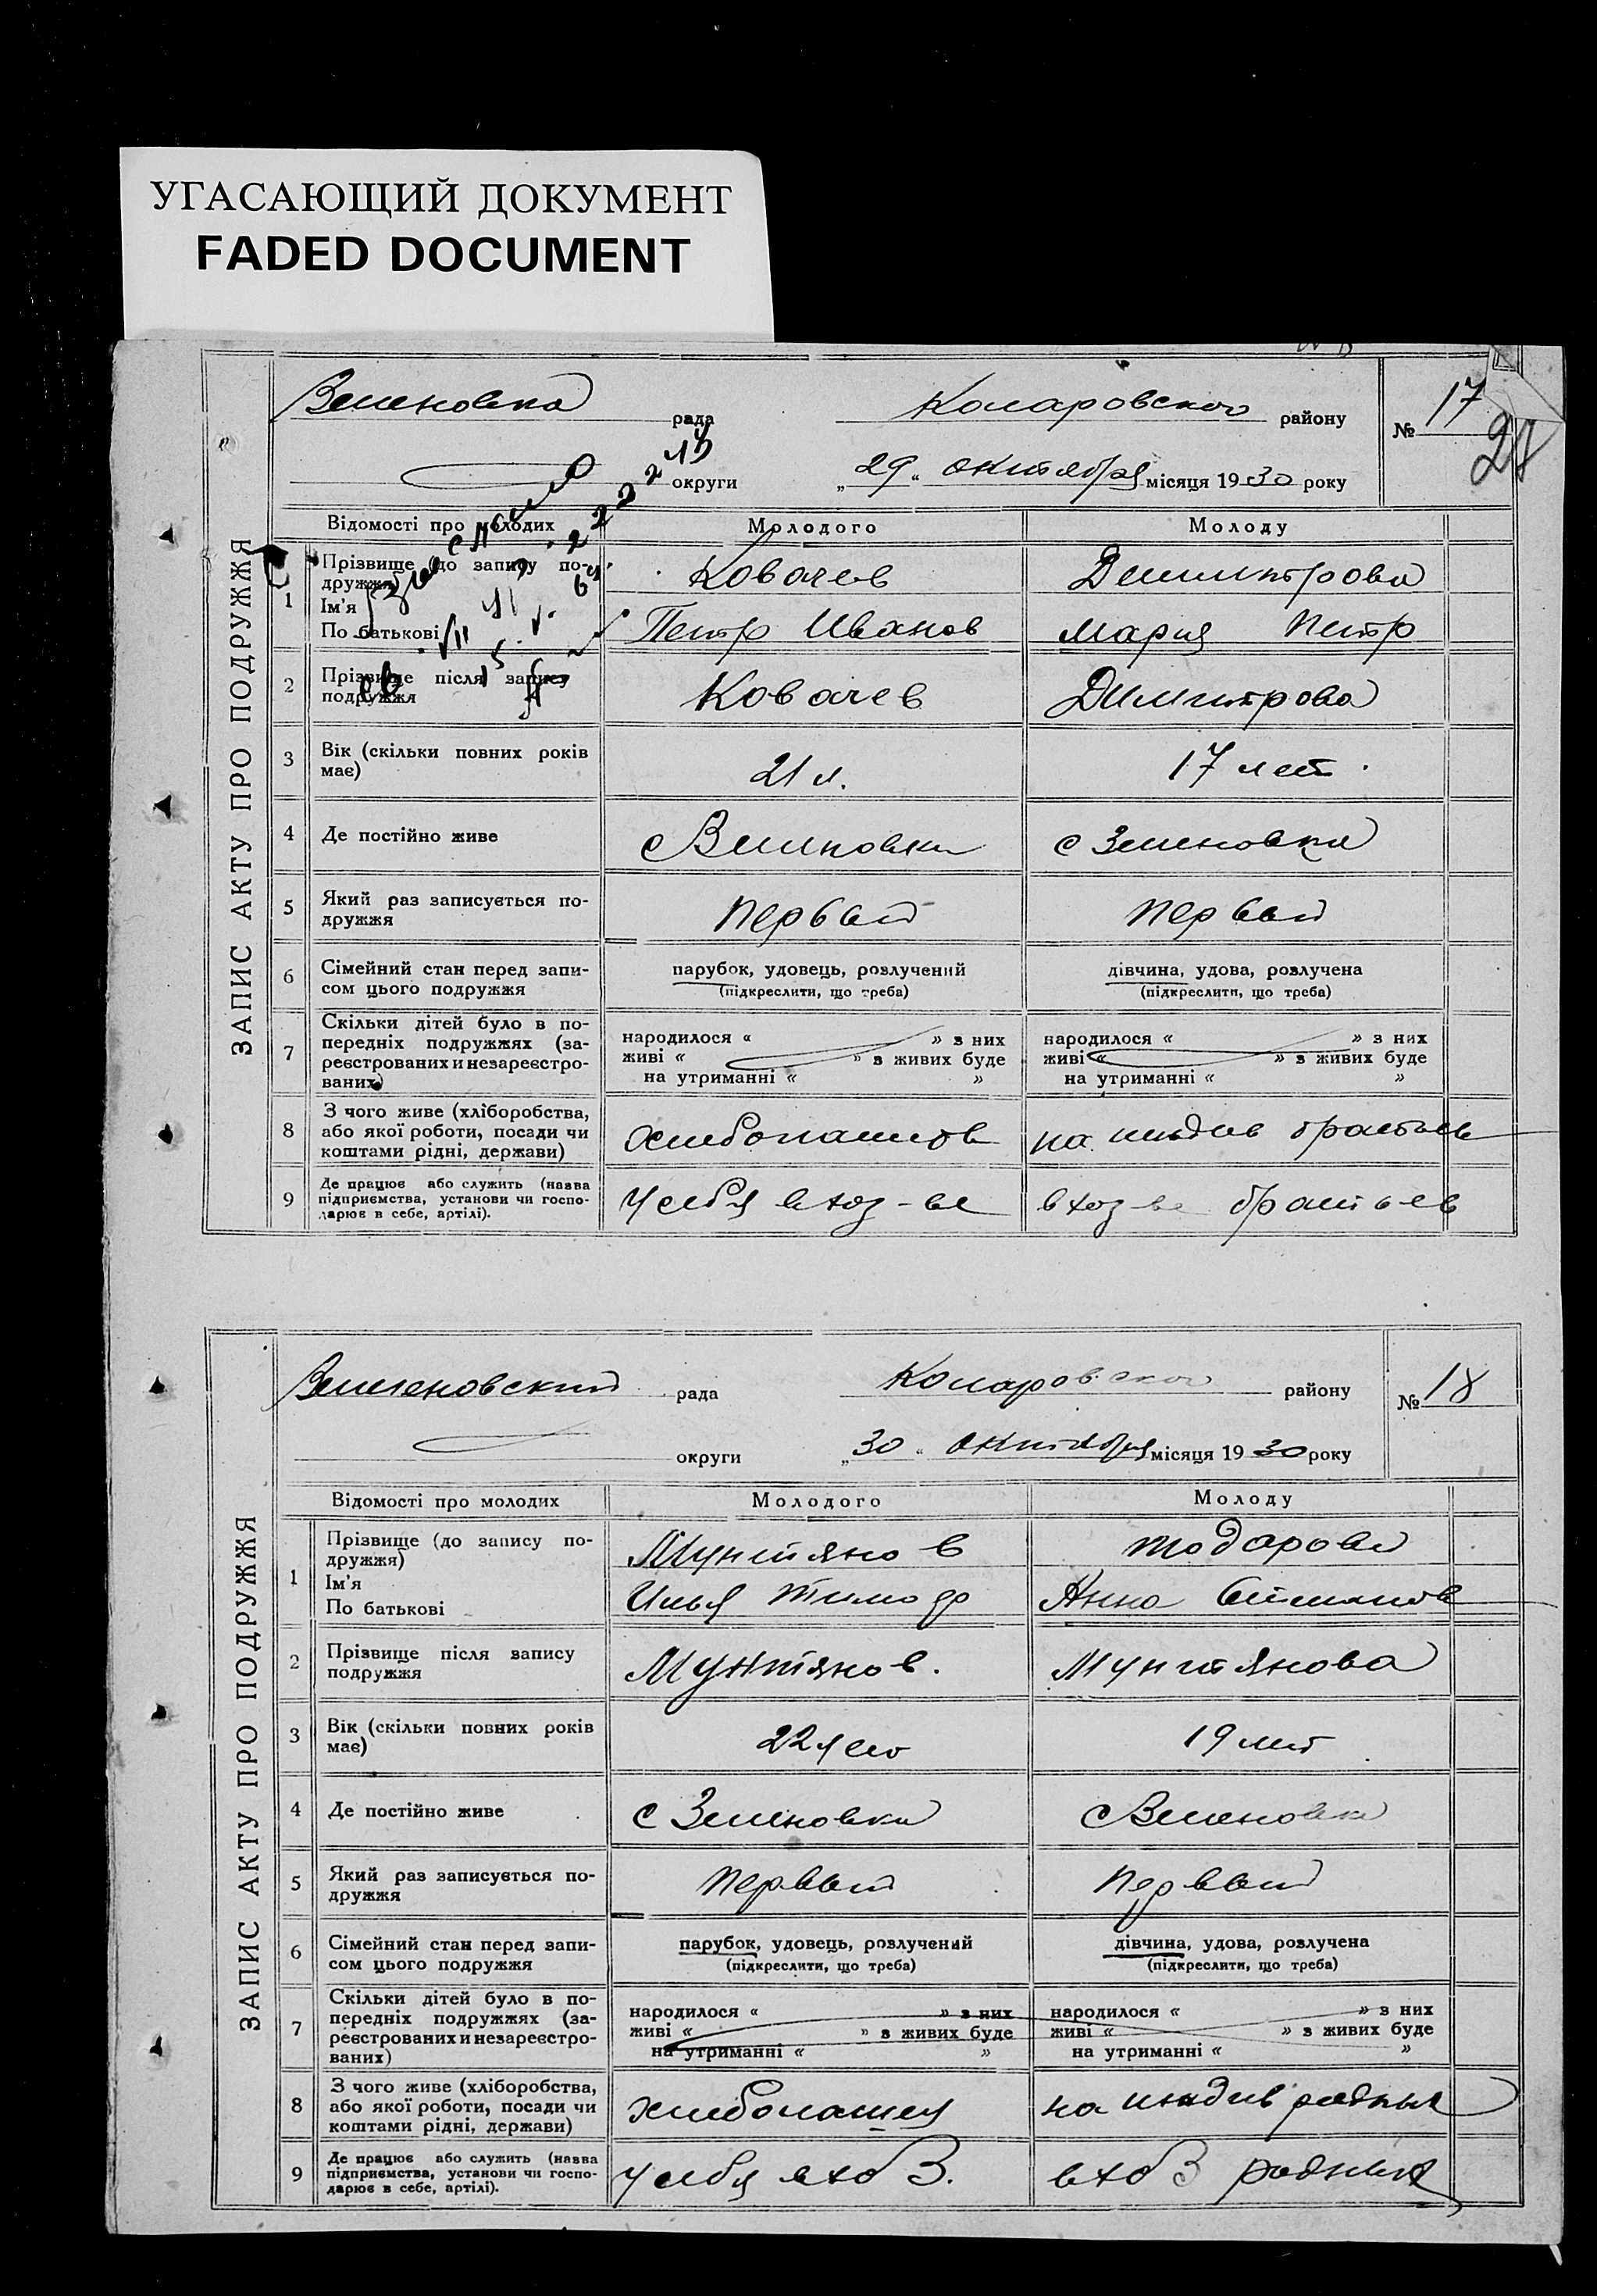 УГАСАЮЩИЙ ДОКУМЕНТ
FADED DOCUMENT
ЗАПИС АКТУ ПРО ПОДРУЖЖЯ
рада Коларовского району № 17
28
округи „29“ октября місяця 1930 року
Відомості про молодих Молодого Молоду
1 Прізвище (до запису по-
дружжя) Ковачев Димитрова
Ім'я
По батькові Петр Иванов Мария Петр
2 Прізвище після запису
подружжя Ковачев Димитрова
3 Вік (скільки повних років
має) 21 л. 17 лет.
4 Де постійно живе с Зеленовка с Зеленовка
5 Який раз записується по-
дружжя первый первый
6 Сімейний стан перед запи-
сом цього подружжя парубок, удовець, розлучений дівчина, удова, розлучена
(підкреслити, що треба) (підкреслити, що треба)
7 Скільки дітей було в по-
передніх подружжях (за-
реєстрованих и незареєстро-
ваних) народилося « » з них народилося « » з них
живі « » з живих буде живі « » з живих буде
на утриманні « » на утриманні « »
8 З чого живе (хліборобства,
або якої роботи, посади чи
коштами рідні, держави) на иждив братьев
9 Де працює або служить (назва
підприємства, установи чи госпо-
дарює в себе, артілі). у себя в хоз-ве в хоз-ве братьев
ЗАПИС АКТУ ПРО ПОДРУЖЖЯ
рада Коларовского району № 18
округи „30“ октября місяця 1930 року
Відомості про молодих Молодого Молоду
1 Прізвище (до запису по-
дружжя) Мунтянов Тодорова
Ім'я
По батькові Илья Тимоф Анна Степанов
2 Прізвище після запису
подружжя Мунтянов. Мунтянова
3 Вік (скільки повних років
має) 22 лет 19 лет
4 Де постійно живе с Зеленовка с Зеленовка
5 Який раз записується по-
дружжя первый первый
6 Сімейний стан перед запи-
сом цього подружжя парубок, удовець, розлучений дівчина, удова, розлучена
(підкреслити, що треба) (підкреслити, що треба)
7 Скільки дітей було в по-
передніх подружжях (за-
реєстрованих и незареєстро-
ваних) народилося « » з них народилося « » з них
живі « » з живих буде живі « » з живих буде
на утриманні « » на утриманні « »
8 З чого живе (хліборобства,
або якої роботи, посади чи
коштами рідні, держави) хлебопашец на иждив родных
9 Де працює або служить (назва
підприємства, установи чи госпо-
дарює в себе, артілі). у себя родных